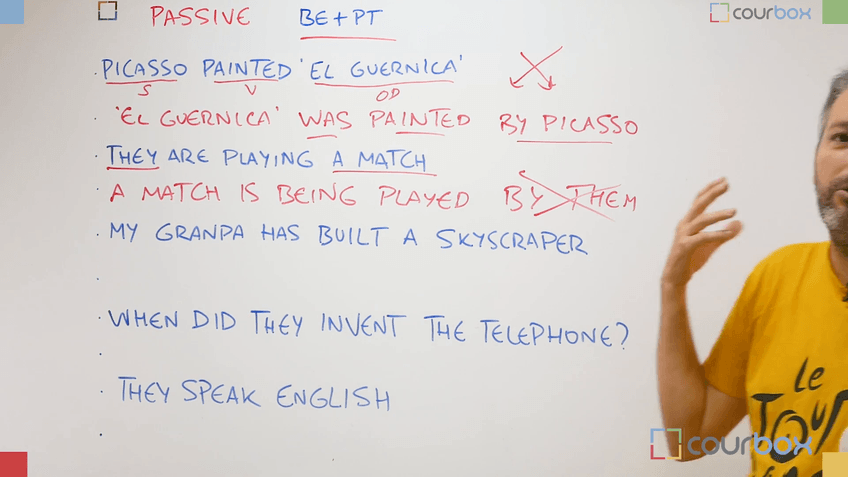 PASSIVE BE+PT
courbox
PICASSO PAINTED 'EL GUERNICA'
S V OD
'EL GUERNICA' WAS PAINTED BY PICASSO
THEY ARE PLAYING A MATCH
A MATCH IS BEING PLAYED BY THEM
MY GRANPA HAS BUILT A SKYSCRAPER
WHEN DID THEY INVENT THE TELEPHONE?
THEY SPEAK ENGLISH
le
TOUR
courbox